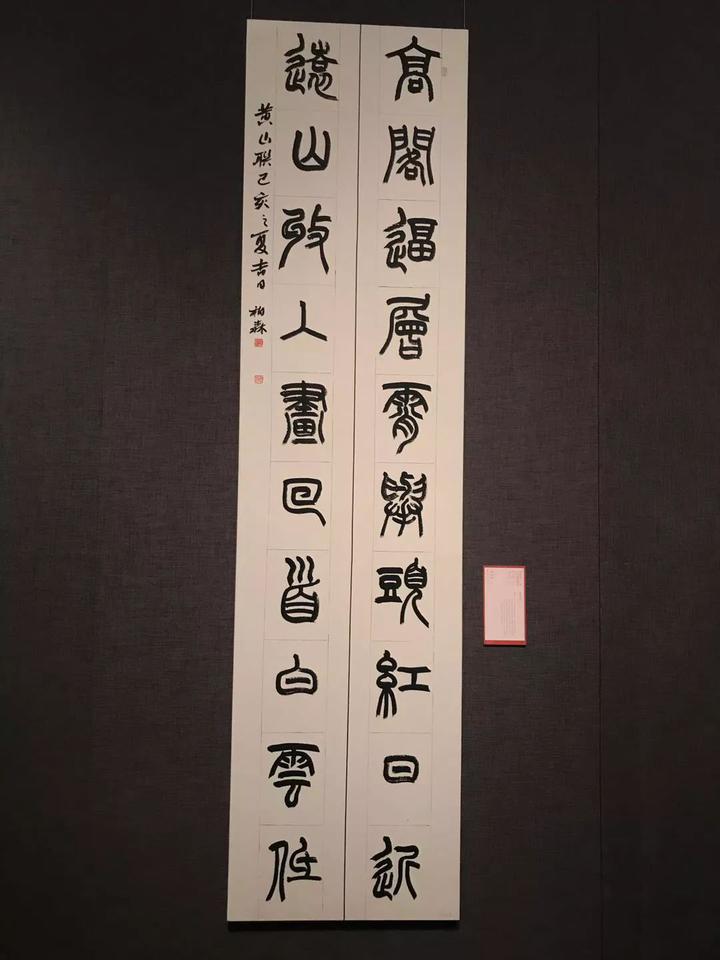 高閣逼層霄舉頭紅日近
遠山收入畫回首白雲低
黄山聯己亥之夏吉日
柏森